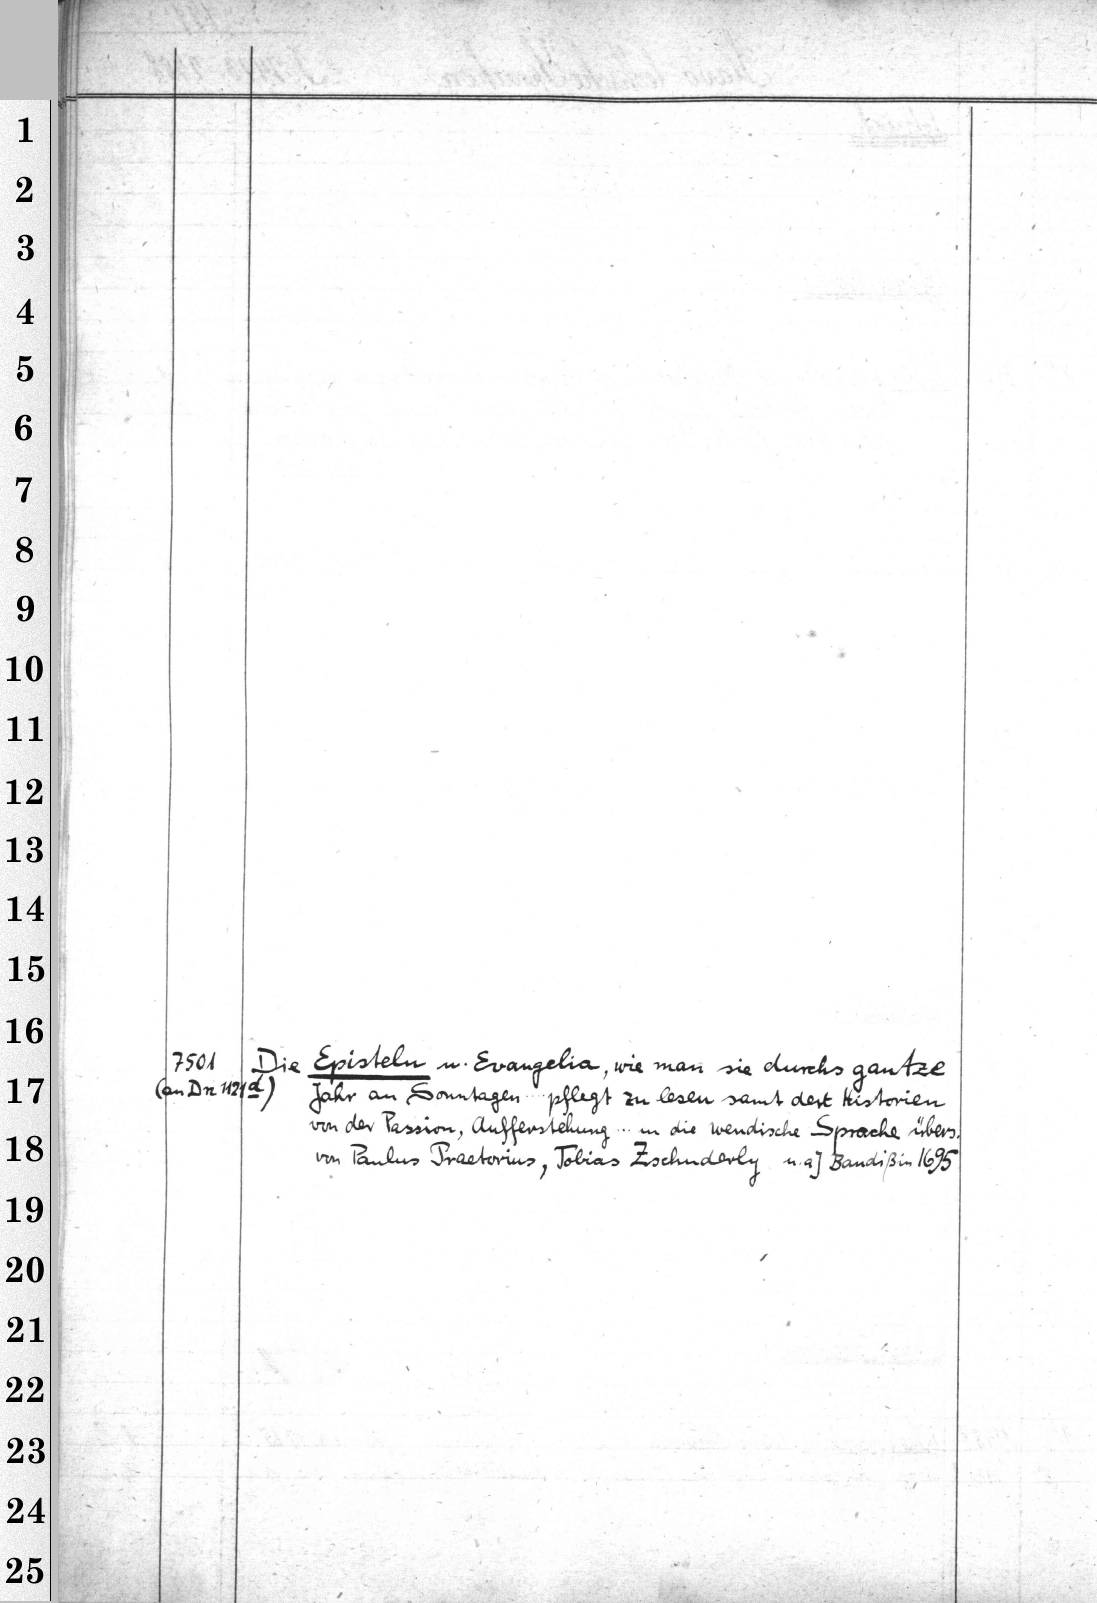 1
2
3
4
5
6
7
8
9
10
11
12
13
14
15
16
17
18
19
20
21
22
23
24
25
7501 Die Episteln u. Evangelia, wie man sie durchs gantze
(an Dn 1121 d) Jahr an Sonntagen ... pflegt zu lesen samt den Historien
von der Passion, Aufferstehung ... in die wendische Sprache übers.
von Paulus Praetorius, Tobias Zschuderly u. a] Bandißin 1695